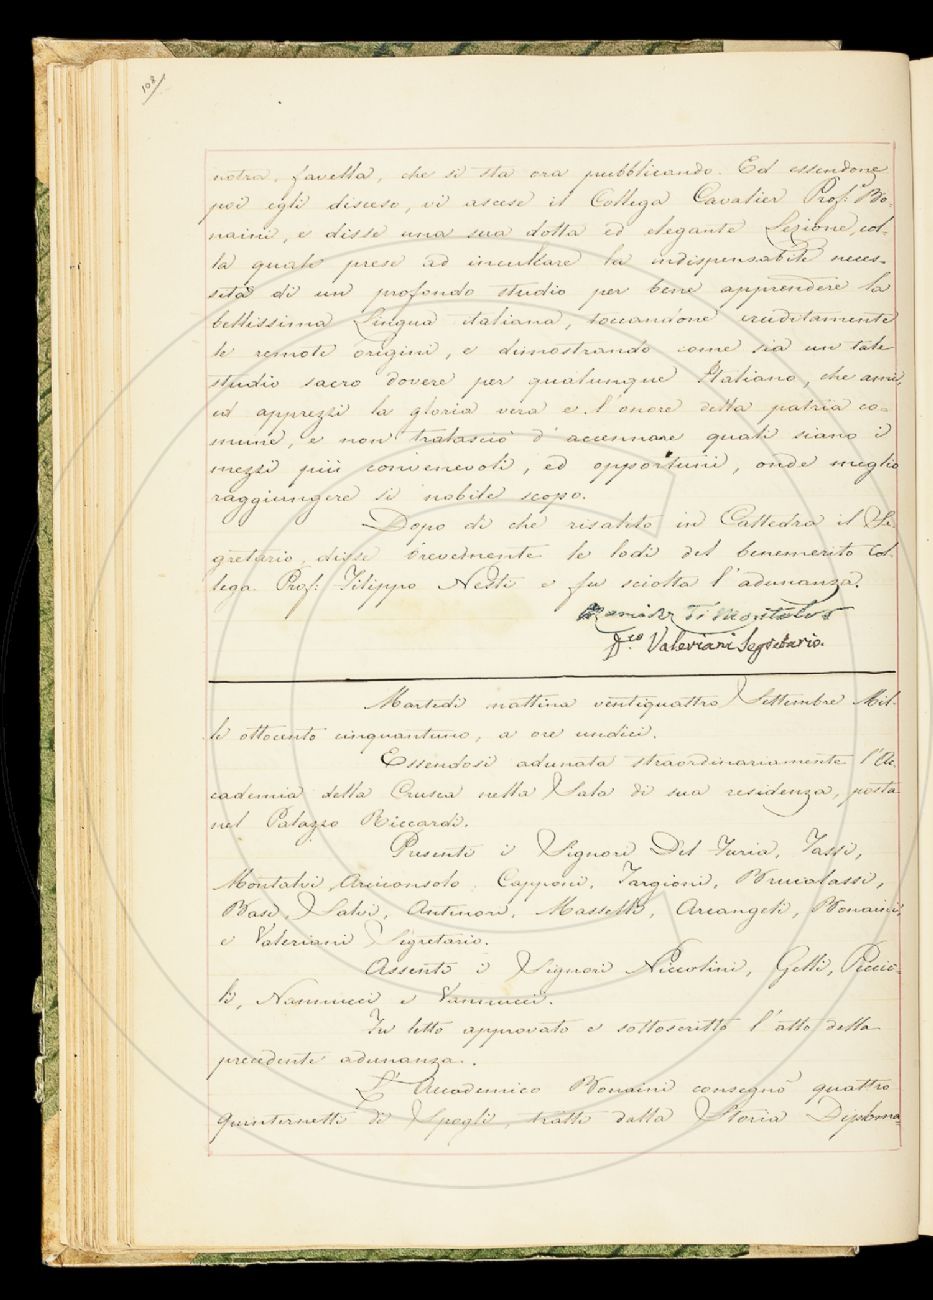 108
nostra favella, che si sta ora pubblicando. Ed essendone
poi egli disceso, vi ascese il Collega Cavalier Prof.r Bo-
naini, e disse una sua dotta ed elegante Lezione, col-
la quale prese ad inculcare la indispensabile neces-
sità di un profondo studio per bene apprendere la
bellissima Lingua italiana, toccandone eruditamente
le remote origini, e dimostrando come sia un tale
studio sacro dovere per qualunque Italiano, che ami,
ed apprezzi la gloria vera e l'onore della patria co-
mune, e non tralasciò d'accennare quali siano i
mezzi più convenevoli, ed opportuni, onde meglio
raggiungere sì nobile scopo.
Dopo di che risalito in Cattedra il Se-
gretario, disse brevemente le lodi del benemerito Col-
lega Prof: Filippo Nesti e fu sciolta l'adunanza.
Montalvo
F.co Valeriani Segretario.
Martedì mattina ventiquattro Settembre Mil-
le ottocento cinquantuno, a ore undici.
Essendosi adunata straordinariamente l'Ac-
cademia della Crusca nella Sala di sua residenza, posta
nel Palazzo Riccardi.
Presenti i Signori Del Furia, Tassi,
Montalvi Arciconsolo, Capponi, Targioni, Brucalassi,
Basi, Salvi, Antinori, Masselli, Arcangeli, Bonaini,
e Valeriani Segretario.
Assenti i Signori Niccolini, Gelli, Piccio-
li, Nannucci e Vannucci.
Fu letto approvato e sottoscritto l'atto della
precedente adunanza.
L'Accademico Bonaini consegnò quattro
quinternetti di Spogli, tratti dalla Storia Diploma-